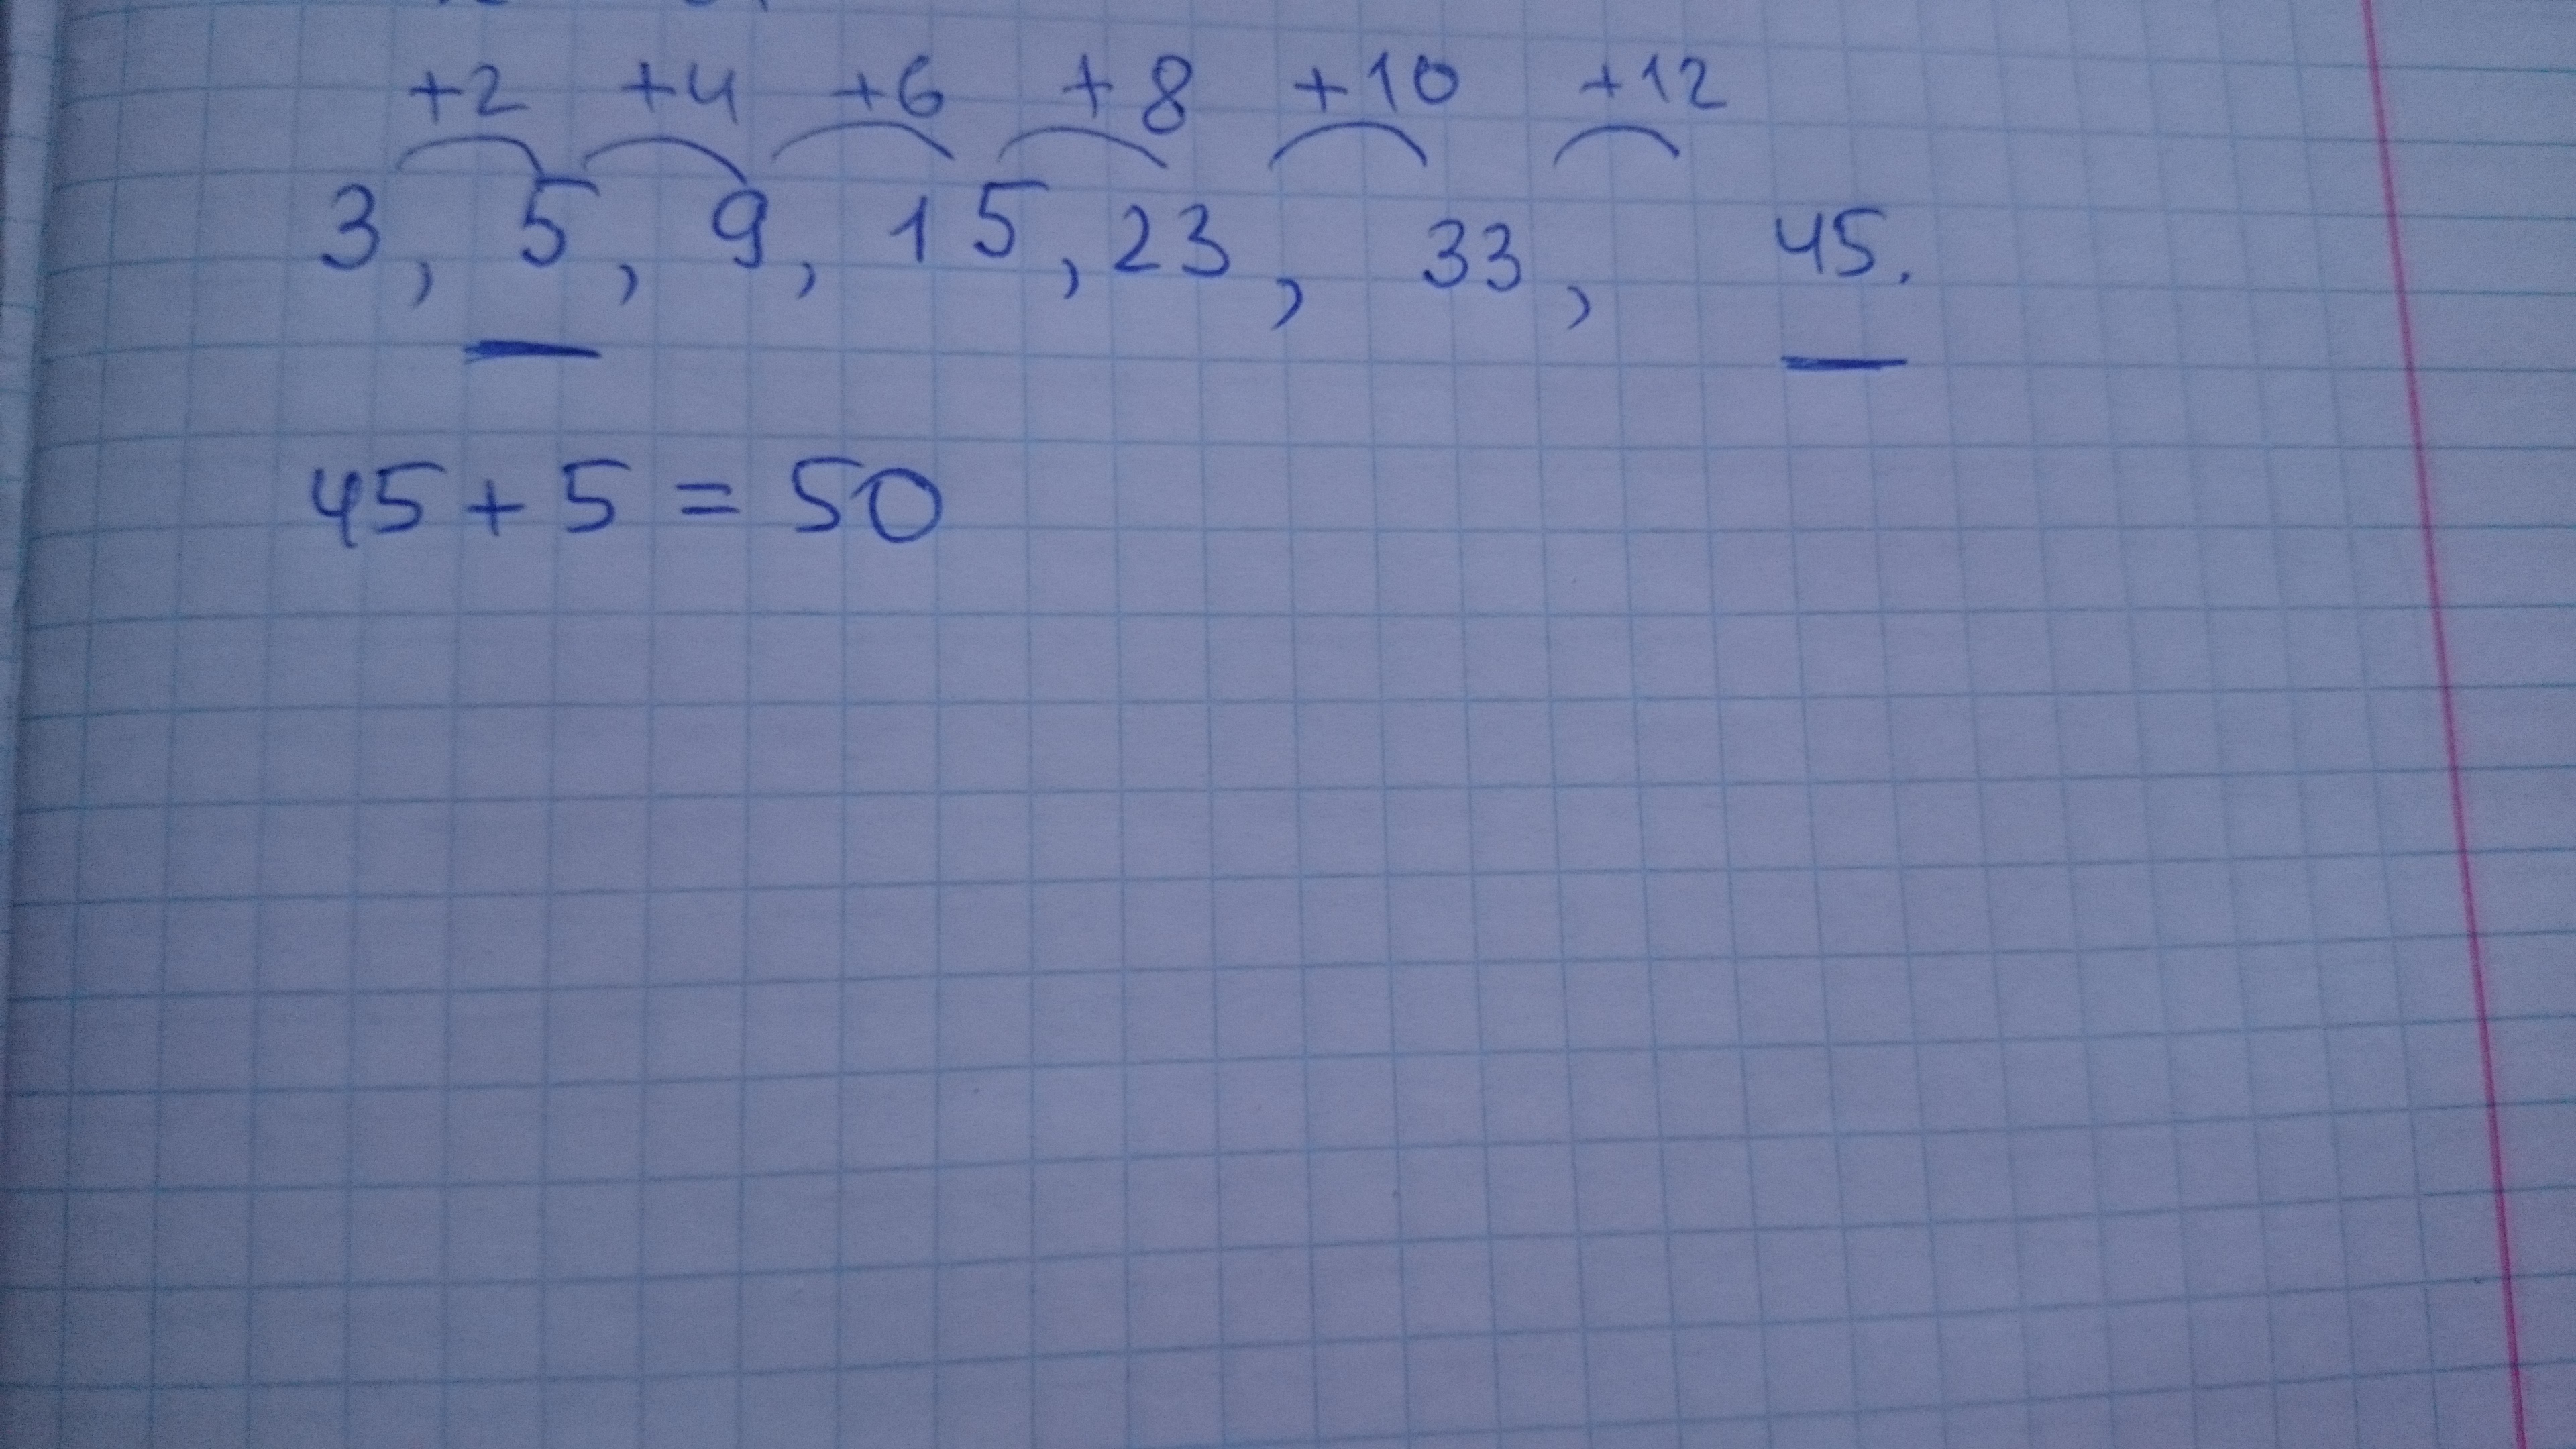 +2 +4 +6 +8 +10 +12
3, 5, 9, 15, 23, 33, 45.
45 + 5 = 50